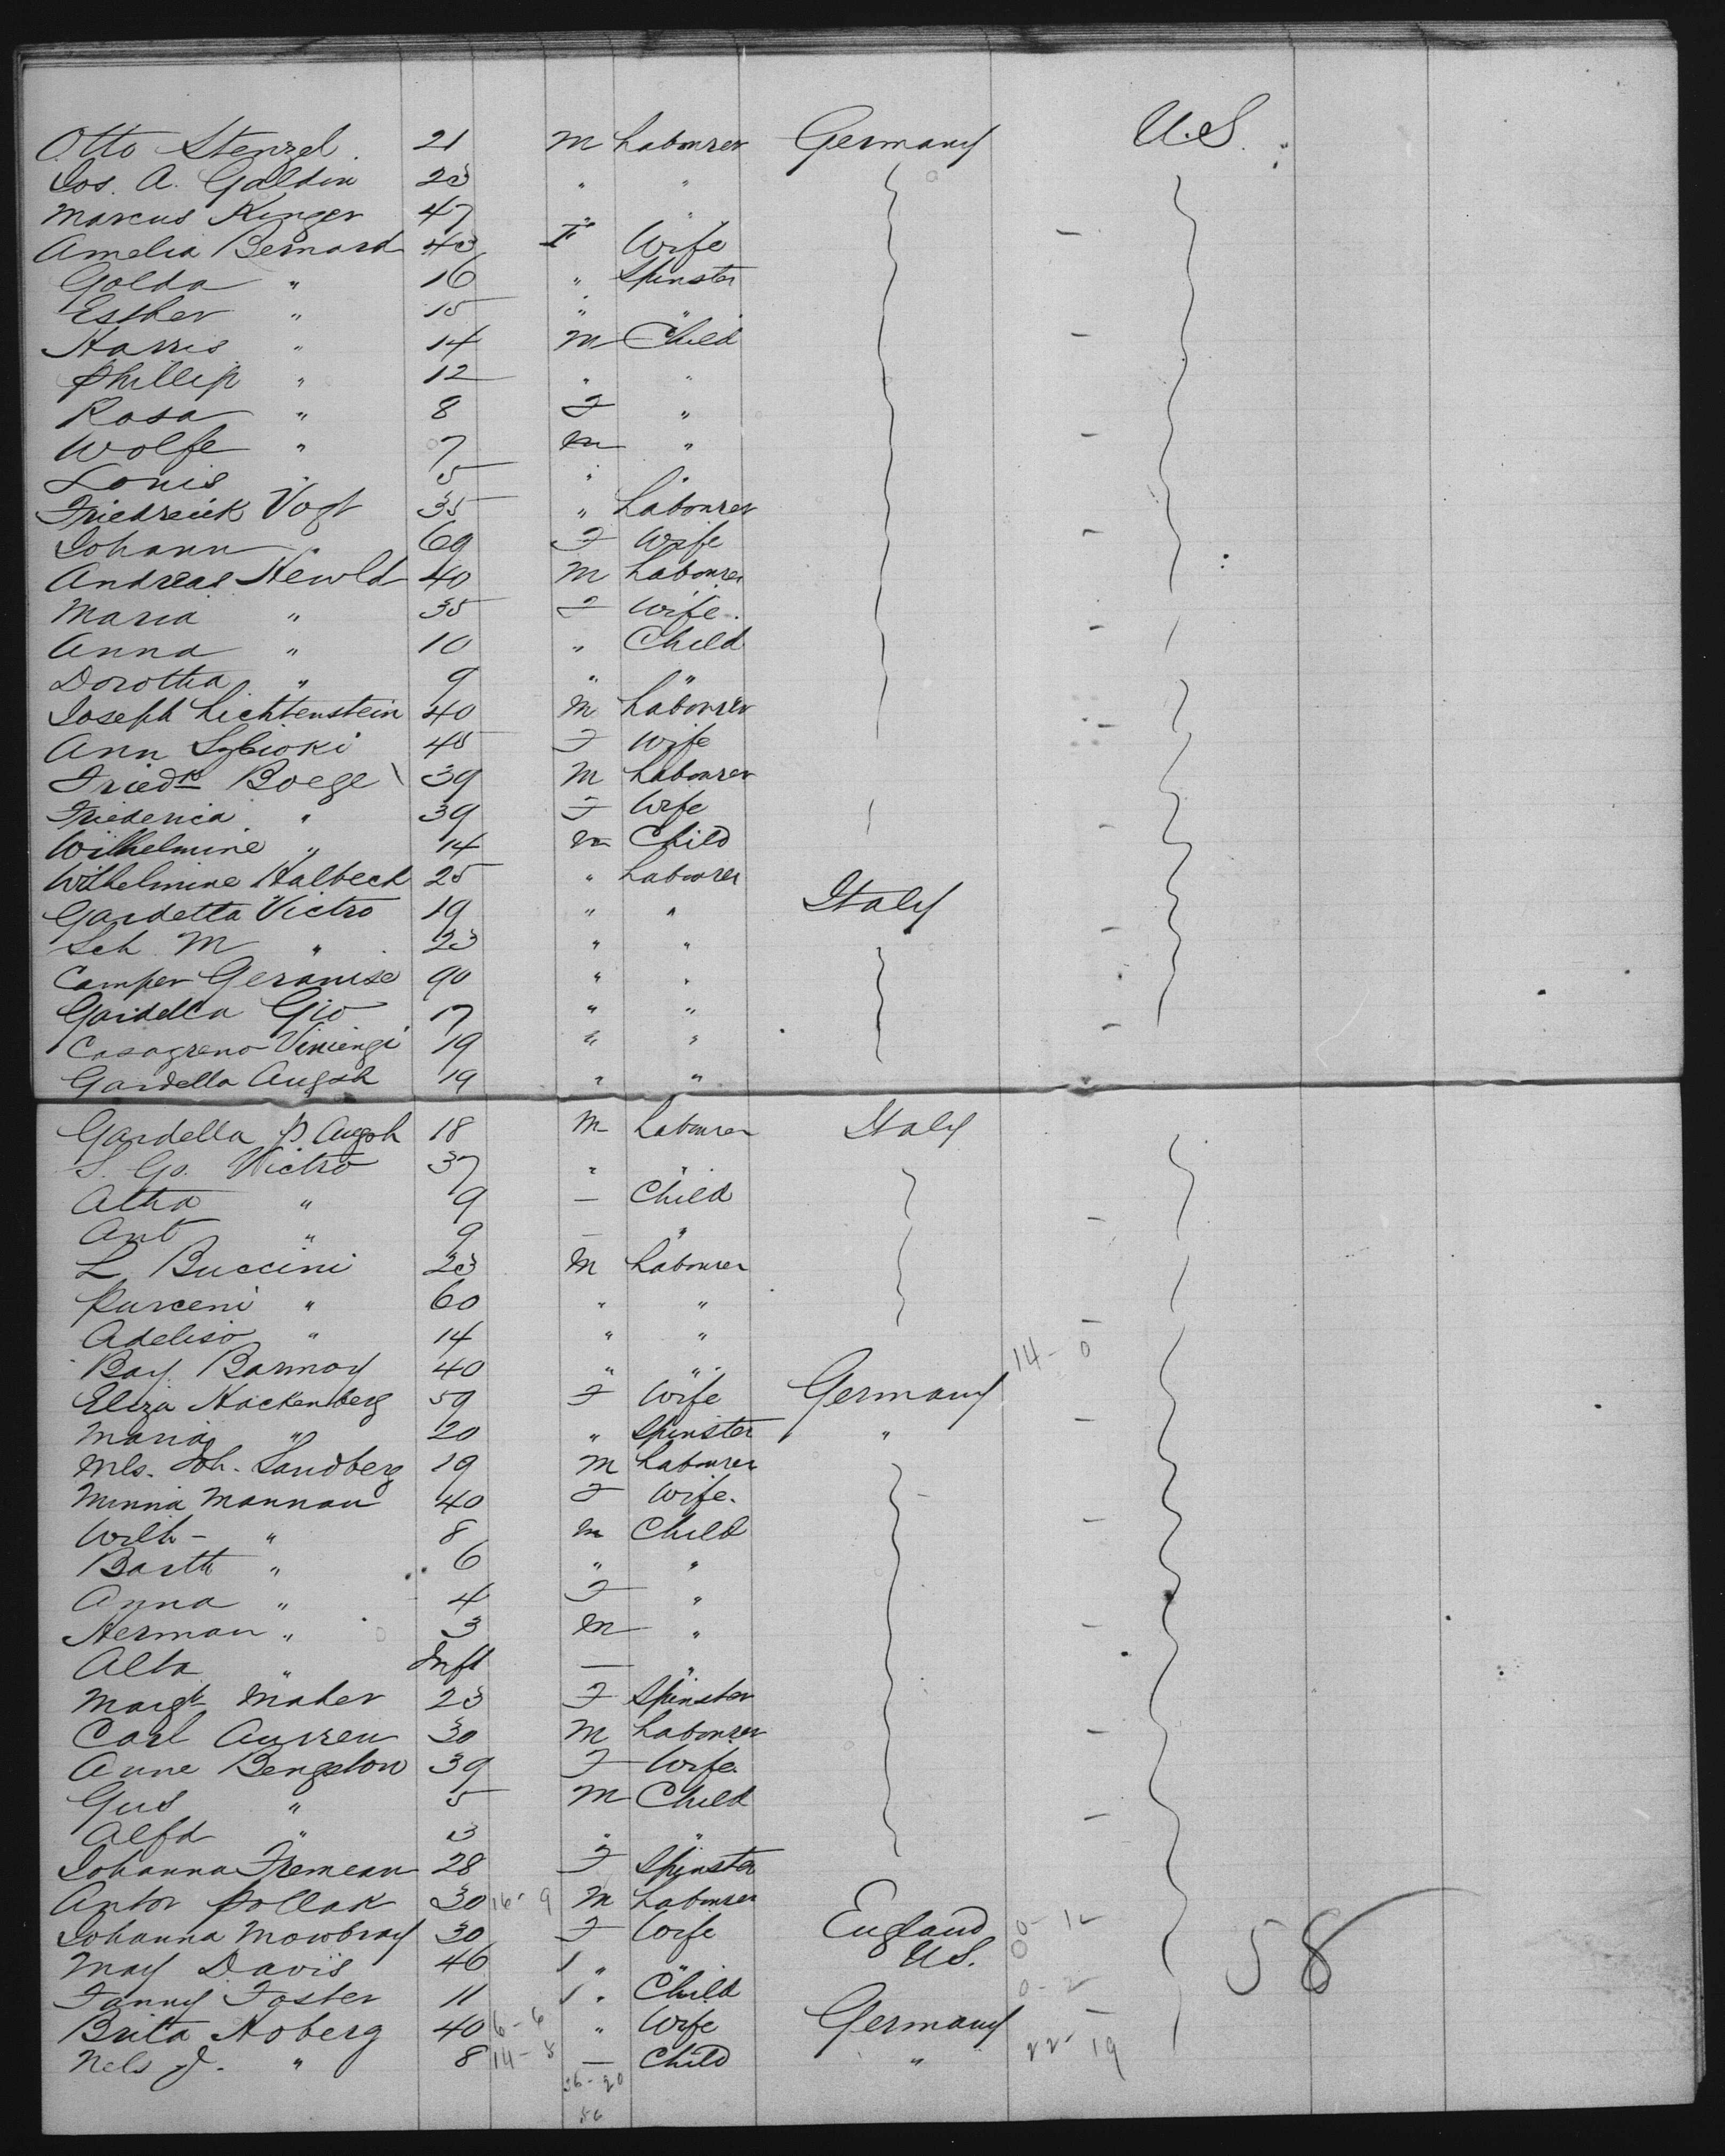 Otto Stenzel. 21 M Labourer Germany U.S.
Jos. A. Galdin 23 " "
Marcus Kinger 47 " "
Amelia Bernard 43 F Wife
Golda " 16 " Spinster
Esther " 15 " "
Harris " 14 M Child
Phillip " 12 " "
Rosa " 8 F "
Wolfe " 7 M "
Louis " 5 " "
Friedreick Vogt 35 " Labourer
Johann " 69 F Wife
Andreas Hewld 40 M Labourer
Maria " 35 F Wife.
Anna " 10 " Child
Dorothea " 9 " "
Joseph Lichtenstein 40 M Labourer
Ann 45 F Wife
Friedk Boege 39 M Labourer
Friederica " 39 F Wife
Wilhelmine " 14 M Child
Wilhelmine Halbeck 25 " Labourer
Gardetta Victro 19 " " Italy
Sch M " 23 " "
Camper Geranise 90 " "
Gardella Gio 17 " "
Casagreno 19 " "
Gardella Augsh 19 " "
Gardella P Augsh 18 M Labourer Italy
S. Go. Victro 37 " "
Altra " 9 — Child
Ant " 9 — "
L Buccini 23 M Labourer
Purceni " 60 " "
Adeliso " 14 " "
Bay. Barmoy 40 " " 14 - 0
Eliza Hackenberg 59 F Wife Germany
Maria " 20 " Spinster "
Mls. Joh. Sandberg 19 M Labourer
Minnia Mannau 40 F Wife.
Wilh - " 8 M Child
Barth " 6 " "
Anna " 4 F "
Herman " 3 M "
Alta " Inft — "
Margt Maher 23 F Spinster
Carl Aurren 30 M Labourer
Anne Bengston 39 F Wife.
Gus " 5 M Child
Alfd " 3 " "
Johanna Fremean 28 F Spinster
Anton Pollak 30 16 - 9 M Labourer
Johanna Mowbray 30 F Wife England 58
May Davis 46 " " U.S.
Fanny Foster 11 " Child 0 - 2
Brita Hoberg 40 6 - 6 " Wife Germany
Nels J. " 8 14 - 5 — Child " 22 - 19
36 - 20
56